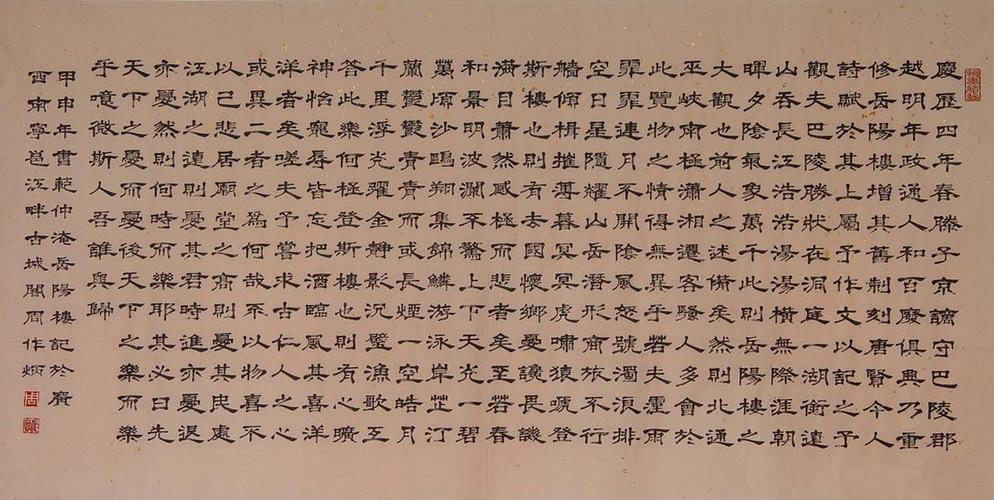 慶歷四年春滕子京謫守巴陵郡
越明年政通人和百廢俱興乃重
修岳陽樓增其舊制刻唐賢今人
詩賦於其上屬予作文以記之予
觀夫巴陵勝狀在洞庭一湖銜遠
山吞長江浩浩湯湯橫無際涯朝
暉夕陰氣象萬千此則岳陽樓之
大觀也前人之述備矣然則北通
巫峽南極瀟湘遷客騷人多會於
此覽物之情得無異乎若夫霪雨
霏霏連月不開陰風怒號濁浪排
空日星隱耀山岳潛形商旅不行
檣傾楫摧薄暮冥冥虎嘯猿啼登
斯樓也則有去國懷鄉憂讒畏譏
滿目蕭然感極而悲者矣至若春
和景明波瀾不驚上下天光一碧
萬頃沙鷗翔集錦鱗游泳岸芷汀
蘭鬱鬱青青而或長煙一空皓月
千里浮光耀金靜影沉璧漁歌互
答此樂何極登斯樓也則有心曠
神怡寵辱皆忘把酒臨風其喜洋
洋者矣嗟夫予嘗求古仁人之心
或異二者之為何哉不以物喜不
以己悲居廟堂之高則憂其民處
江湖之遠則憂其君時進亦憂退
亦憂然則何時而樂耶其必曰先
天下之憂而憂後天下之樂而樂
乎噫微斯人吾誰與歸
甲申年書範仲淹岳陽樓記於廣
西南寧邕江畔古城閣周作炳